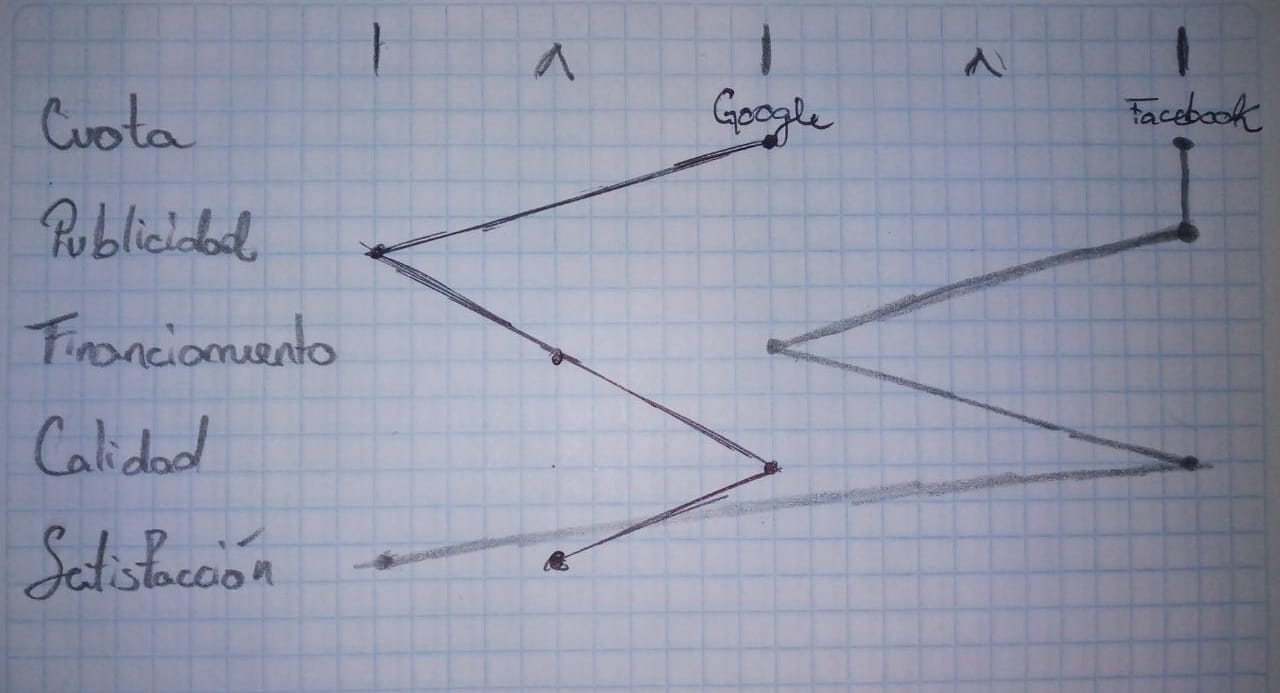 | ʌ | ʌ |
Cuota Google Facebook
Publicidad
Financiamiento
Calidad
Satisfacción